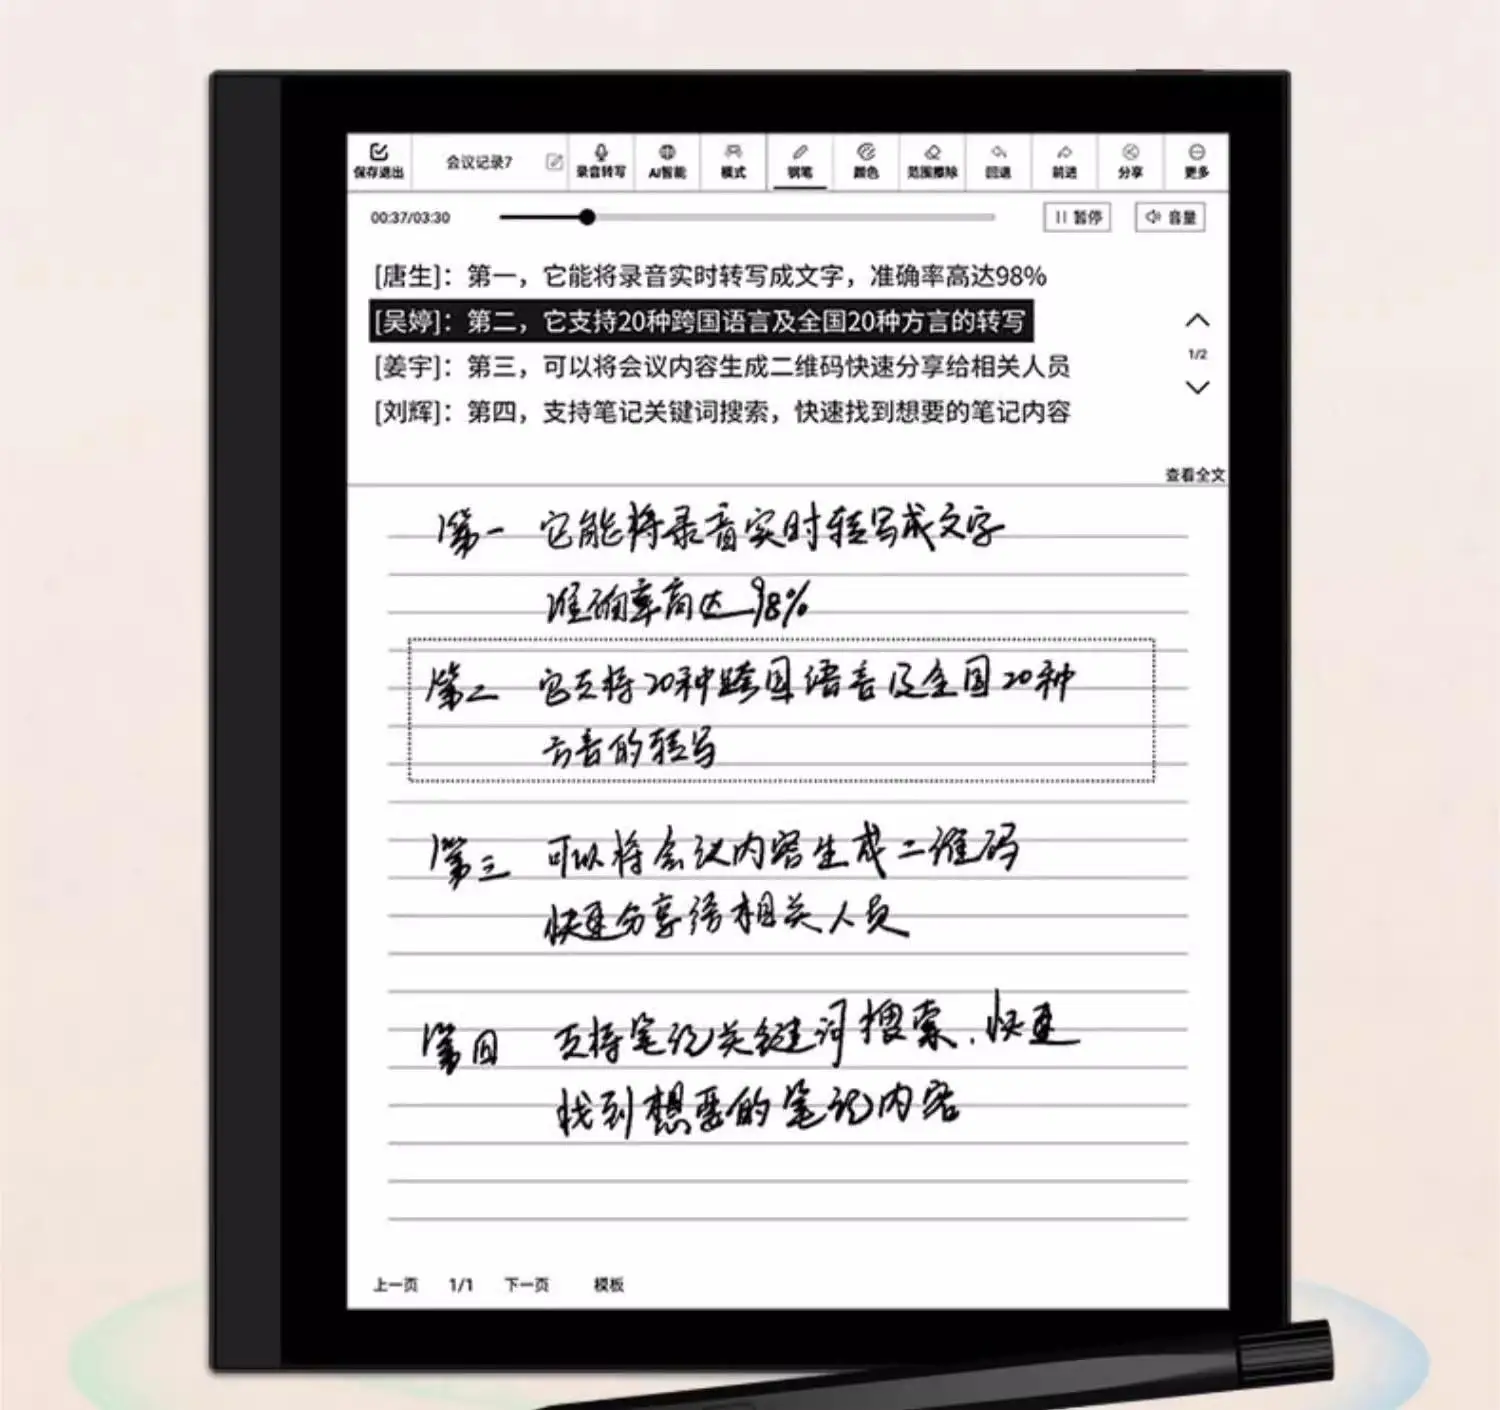 保存退出 会议记录7 录音转写 AI智能 模式 钢笔 颜色 范围擦除 回退 前进 分享 更多
00:37/03:30 暂停 音量
[唐生]：第一，它能将录音实时转写成文字，准确率高达98%
[吴婷]：第二，它支持20种跨国语言及全国20种方言的转写
[姜宇]：第三，可以将会议内容生成二维码快速分享给相关人员
[刘辉]：第四，支持笔记关键词搜索，快速找到想要的笔记内容
1/2
查看全文
第一 它能将录音实时转写成文字
准确率高达98%
第二 它支持20种跨国语言及全国20种
方言的转写
第三 可以将会议内容生成二维码
快速分享给相关人员
第四 支持笔记关键词搜索，快速
找到想要的笔记内容
上一页 1/1 下一页 模板